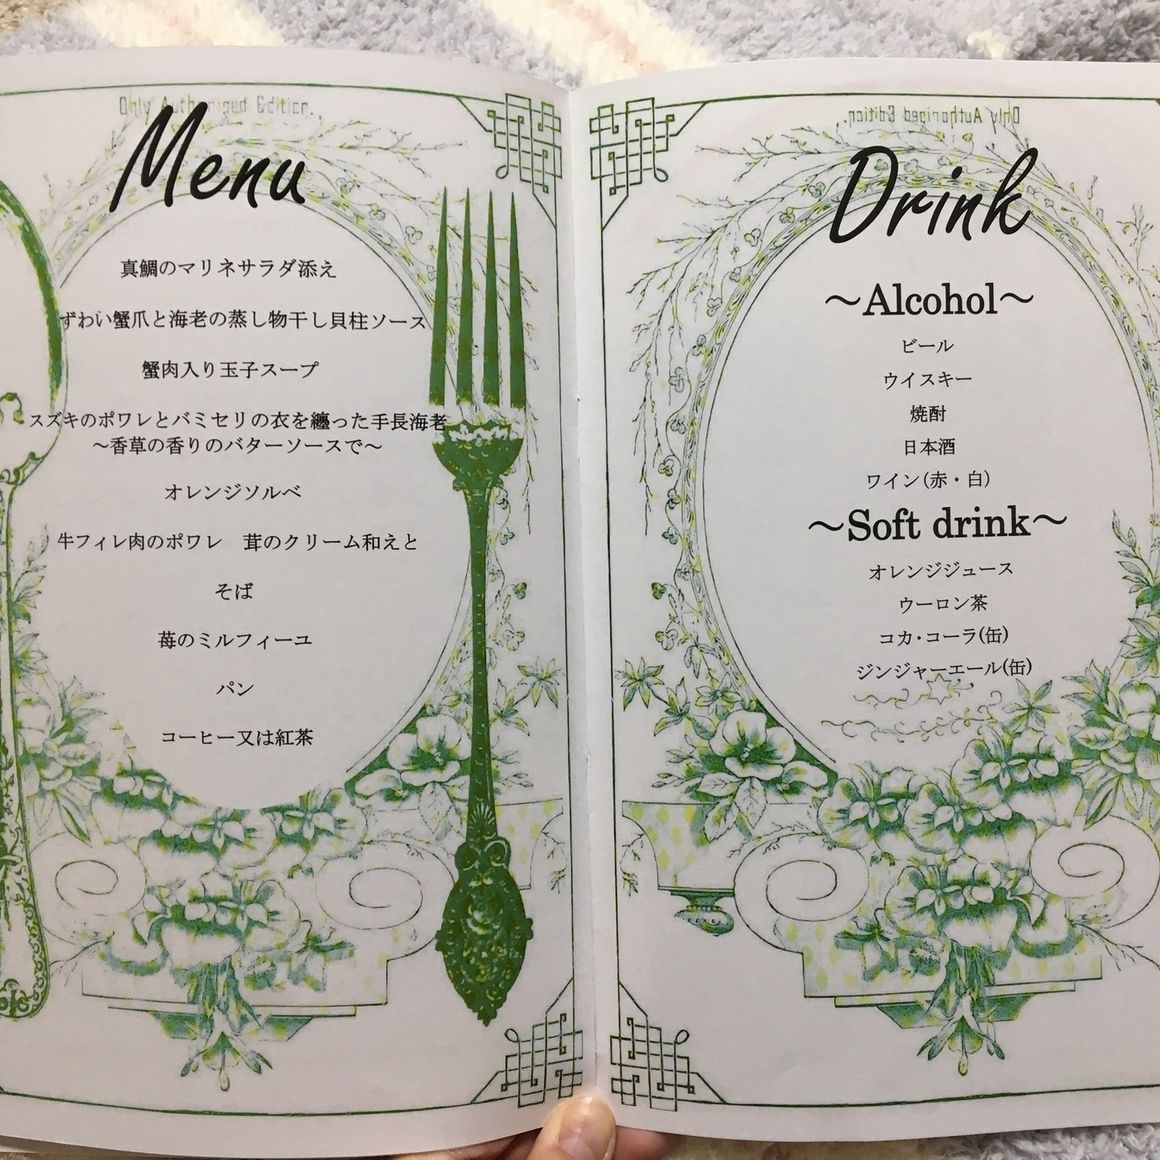 Only Authorized Edition.
Menu
真鯛のマリネサラダ添え
ずわい蟹爪と海老の蒸し物干し貝柱ソース
蟹肉入り玉子スープ
スズキのポワレとバミセリの衣を纏った手長海老
～香草の香りのバターソースで～
オレンジソルベ
牛フィレ肉のポワレ　茸のクリーム和えと
そば
苺のミルフィーユ
パン
コーヒー又は紅茶
Only Authorized Edition.
Drink
～Alcohol～
ビール
ウイスキー
焼酎
日本酒
ワイン(赤・白)
～Soft drink～
オレンジジュース
ウーロン茶
コカ・コーラ(缶)
ジンジャーエール(缶)